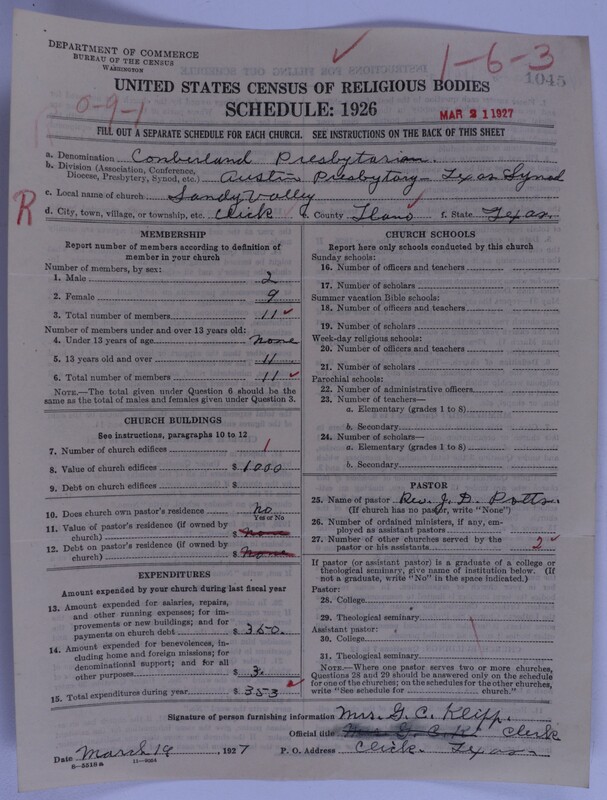 DEPARTMENT OF COMMERCE
BUREAU OF THE CENSUS
WASHINGTON
1-6-3
1045
0-9-1
UNITED STATES CENSUS OF RELIGIOUS BODIES
SCHEDULE: 1926
MAR 21 1927
FILL OUT A SEPARATE SCHEDULE FOR EACH CHURCH. SEE INSTRUCTIONS ON THE BACK OF THIS SHEET
a. Denomination Comberland Presbytarian.
b. Division (Association, Conference, Diocese, Presbytery, Synod, etc.) Austin Presbytary - Texas Synod
c. Local name of church Sandy Valley
R
d. City, town, village, or township, etc. Click e. County Llano f. State Texas.
MEMBERSHIP
Report number of members according to definition of member in your church
Number of members, by sex:
1. Male 2
2. Female 9
3. Total number of members 11
Number of members under and over 13 years old:
4. Under 13 years of age none
5. 13 years old and over 11
6. Total number of members 11
NOTE.—The total given under Question 6 should be the same as the total of males and females given under Question 3.
CHURCH BUILDINGS
See instructions, paragraphs 10 to 12
7. Number of church edifices 1
8. Value of church edifices $ 1000
9. Debt on church edifices $
10. Does church own pastor's residence no
Yes or No
11. Value of pastor's residence (if owned by church) $ None
12. Debt on pastor's residence (if owned by church) $ None
EXPENDITURES
Amount expended by your church during last fiscal year
13. Amount expended for salaries, repairs, and other running expenses; for improvements or new buildings; and for payments on church debt $ 350.
14. Amount expended for benevolences, including home and foreign missions; for denominational support; and for all other purposes $ 3.
15. Total expenditures during year $ 353
CHURCH SCHOOLS
Report here only schools conducted by this church
Sunday schools:
16. Number of officers and teachers
17. Number of scholars
Summer vacation Bible schools:
18. Number of officers and teachers
19. Number of scholars
Week-day religious schools:
20. Number of officers and teachers
21. Number of scholars
Parochial schools:
22. Number of administrative officers
23. Number of teachers—
a. Elementary (grades 1 to 8)
b. Secondary
24. Number of scholars—
a. Elementary (grades 1 to 8)
b. Secondary
PASTOR
25. Name of pastor Rev. J. D. Potts.
(If church has no pastor, write "None")
26. Number of ordained ministers, if any, employed as assistant pastors
27. Number of other churches served by the pastor or his assistants 2
If pastor (or assistant pastor) is a graduate of a college or theological seminary, give name of institution below. (If not a graduate, write "No" in the space indicated.)
Pastor:
28. College
29. Theological seminary
Assistant pastor:
30. College
31. Theological seminary
NOTE.—Where one pastor serves two or more churches, Questions 28 and 29 should be answered only on the schedule for one of the churches; on the schedules for the other churches, write "See schedule for church."
Signature of person furnishing information Mrs. G. C. Klipp.
Official title Clerk
Date March 19, 1927 P. O. Address Click Texas
8-5518a 11-9064